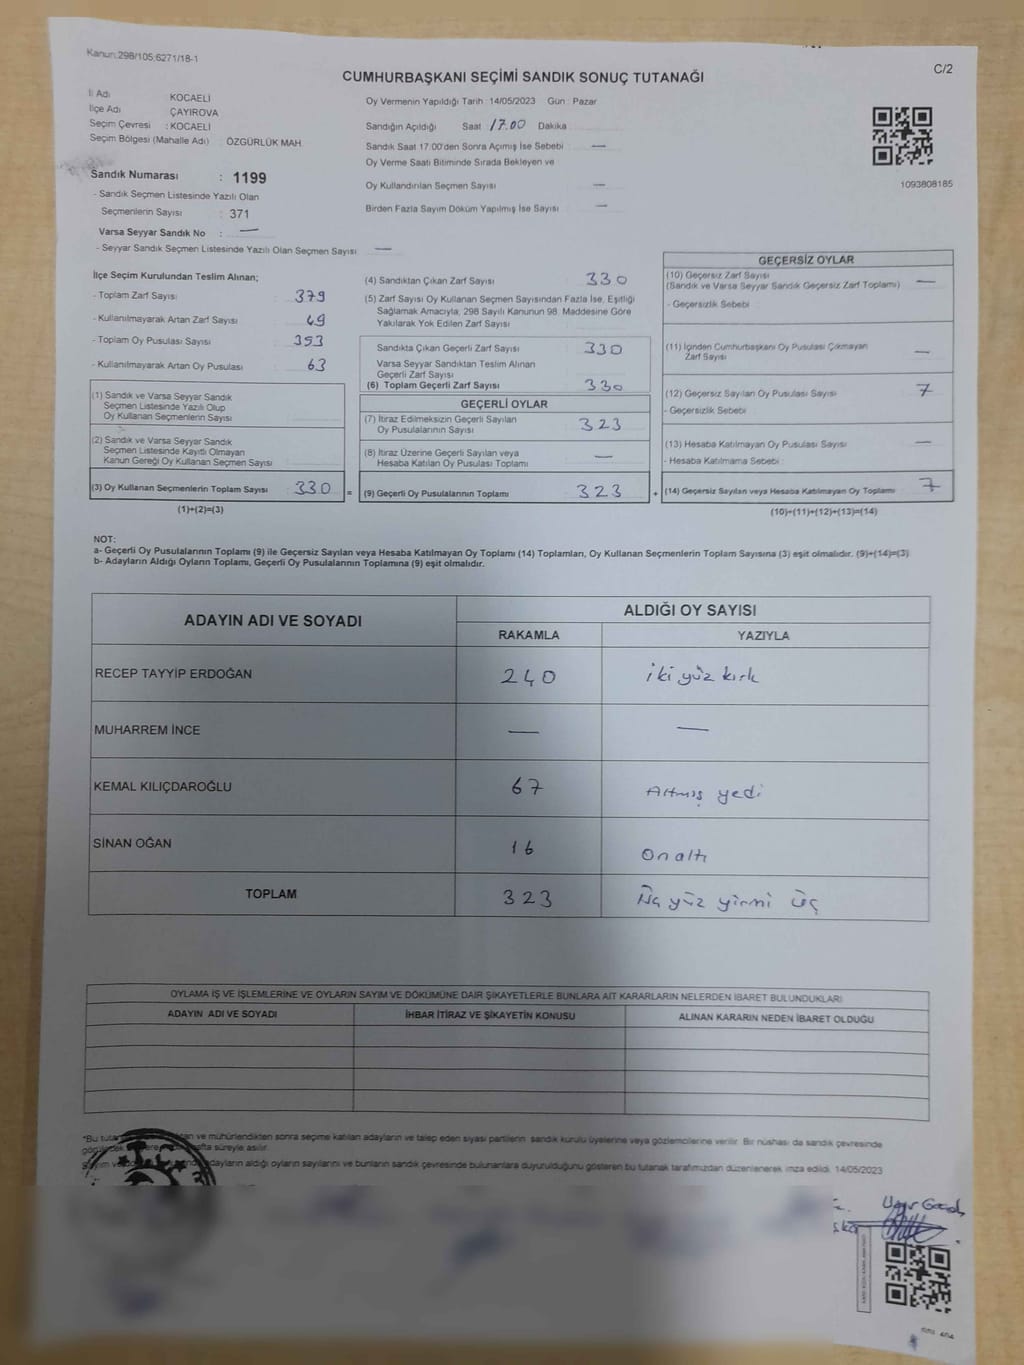 Kanun:298/105;6271/18-1
C/2
CUMHURBAŞKANI SEÇİMİ SANDIK SONUÇ TUTANAĞI
İl Adı KOCAELİ
İlçe Adı ÇAYIROVA
Seçim Çevresi : KOCAELİ
Seçim Bölgesi (Mahalle Adı) ÖZGÜRLÜK MAH.
Sandık Numarası : 1199
- Sandık Seçmen Listesinde Yazılı Olan
Seçmenlerin Sayısı : 371
Varsa Seyyar Sandık No : —
- Seyyar Sandık Seçmen Listesinde Yazılı Olan Seçmen Sayısı —
Oy Vermenin Yapıldığı Tarih : 14/05/2023 Gün : Pazar
Sandığın Açıldığı Saat 17.00 Dakika
Sandık Saat 17:00'den Sonra Açımış İse Sebebi : —
Oy Verme Saati Bitiminde Sırada Bekleyen ve
Oy Kullandırılan Seçmen Sayısı —
Birden Fazla Sayım Döküm Yapılmış İse Sayısı : —
1093808185
İlçe Seçim Kurulundan Teslim Alınan;
- Toplam Zarf Sayısı : 379
- Kullanılmayarak Artan Zarf Sayısı : 49
- Toplam Oy Pusulası Sayısı : 393
- Kullanılmayarak Artan Oy Pusulası : 63
(1) Sandık ve Varsa Seyyar Sandık
Seçmen Listesinde Yazılı Olup
Oy Kullanan Seçmenlerin Sayısı
(2) Sandık ve Varsa Seyyar Sandık
Seçmen Listesinde Kayıtlı Olmayan
Kanun Gereği Oy Kullanan Seçmen Sayısı
(3) Oy Kullanan Seçmenlerin Toplam Sayısı : 330 =
(1)+(2)=(3)
(4) Sandıktan Çıkan Zarf Sayısı : 330
(5) Zarf Sayısı Oy Kullanan Seçmen Sayısından Fazla İse, Eşitliği
Sağlamak Amacıyla; 298 Sayılı Kanunun 98. Maddesine Göre
Yakılarak Yok Edilen Zarf Sayısı
Sandıkta Çıkan Geçerli Zarf Sayısı : 330
Varsa Seyyar Sandıktan Teslim Alınan
Geçerli Zarf Sayısı
(6) Toplam Geçerli Zarf Sayısı : 330
GEÇERLİ OYLAR
(7) İtiraz Edilmeksizin Geçerli Sayılan
Oy Pusulalarının Sayısı : 323
(8) İtiraz Üzerine Geçerli Sayılan veya
Hesaba Katılan Oy Pusulası Toplamı : —
(9) Geçerli Oy Pusulalarının Toplamı : 323 +
GEÇERSİZ OYLAR
(10) Geçersiz Zarf Sayısı
(Sandık ve Varsa Seyyar Sandık Geçersiz Zarf Toplamı) : —
- Geçersizlik Sebebi
(11) İçinden Cumhurbaşkanı Oy Pusulası Çıkmayan
Zarf Sayısı : —
(12) Geçersiz Sayılan Oy Pusulası Sayısı : 7
- Geçersizlik Sebebi
(13) Hesaba Katılmayan Oy Pusulası Sayısı : —
- Hesaba Katılmama Sebebi :
(14) Geçersiz Sayılan veya Hesaba Katılmayan Oy Toplamı : 7
(10)+(11)+(12)+(13)=(14)
NOT:
a- Geçerli Oy Pusulalarının Toplamı (9) ile Geçersiz Sayılan veya Hesaba Katılmayan Oy Toplamı (14) Toplamları, Oy Kullanan Seçmenlerin Toplam Sayısına (3) eşit olmalıdır. (9)+(14)=(3)
b- Adayların Aldığı Oyların Toplamı, Geçerli Oy Pusulalarının Toplamına (9) eşit olmalıdır.
ADAYIN ADI VE SOYADI ALDIĞI OY SAYISI
RAKAMLA YAZIYLA
RECEP TAYYİP ERDOĞAN 240 iki yüz kırk
MUHARREM İNCE — —
KEMAL KILIÇDAROĞLU 67 Altmış yedi
SİNAN OĞAN 16 On altı
TOPLAM 323 Üç yüz yirmi üç
OYLAMA İŞ VE İŞLEMLERİNE VE OYLARIN SAYIM VE DÖKÜMÜNE DAİR ŞİKAYETLERLE BUNLARA AİT KARARLARIN NELERDEN İBARET BULUNDUKLARI
ADAYIN ADI VE SOYADI İHBAR İTİRAZ VE ŞİKAYETİN KONUSU ALINAN KARARIN NEDEN İBARET OLDUĞU
*Bu ve mühürlendikten sonra seçime katılan adayların ve talep eden siyasi partilerin sandık kurulu üyelerine veya gözlemcilerine verilir. Bir nüshası da sandık çevresinde
hafta süreyle asılır.
Sayım adayların aldığı oyların sayılarını ve bunların sandık çevresinde bulunanlara duyurulduğunu gösteren bu tutanak tarafımızdan düzenlenerek imza edildi. 14/05/2023